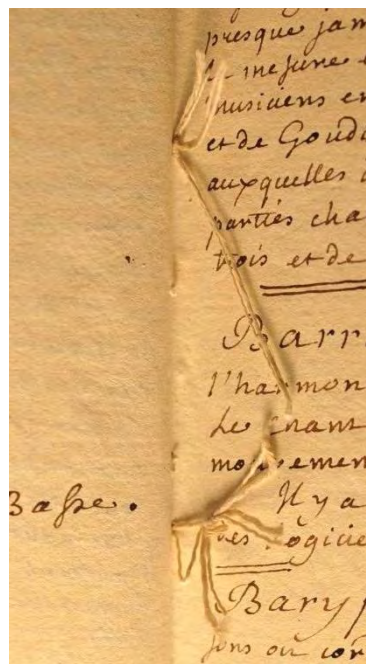 presque jam
musiciens en
et de Goud
auxquelles
parties cha
trois et de
Barr
l'harmon
Le chant
mouvemen
Basse.
Il y a
Bary
sons ou cor